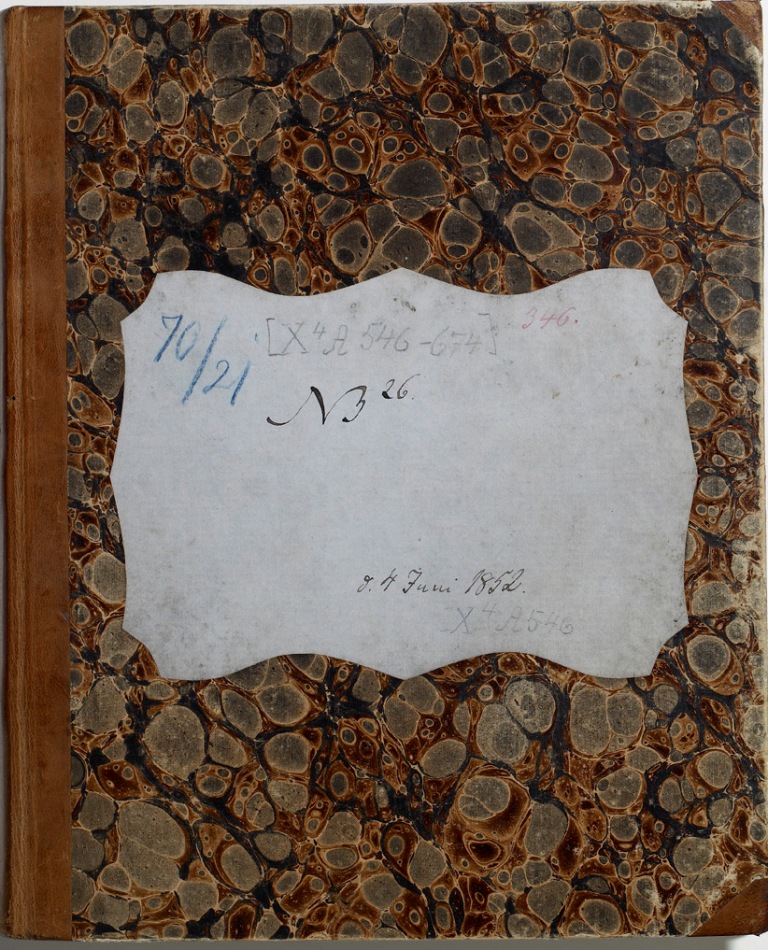 70/21 [X⁴A 546-674] 346.
NB²⁶.
d. 4 Juni 1852.
X⁴A546